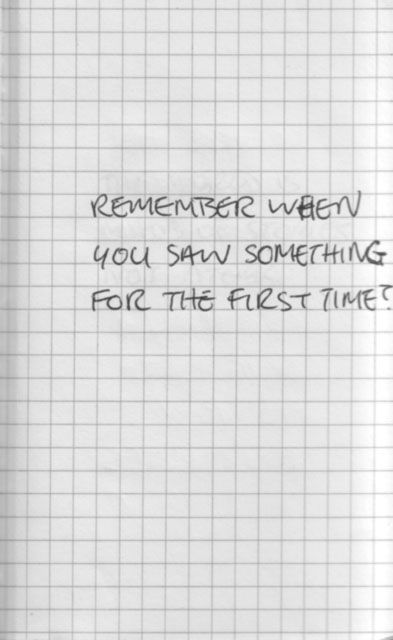 REMEMBER WHEN
YOU SAW SOMETHING
FOR THE FIRST TIME?